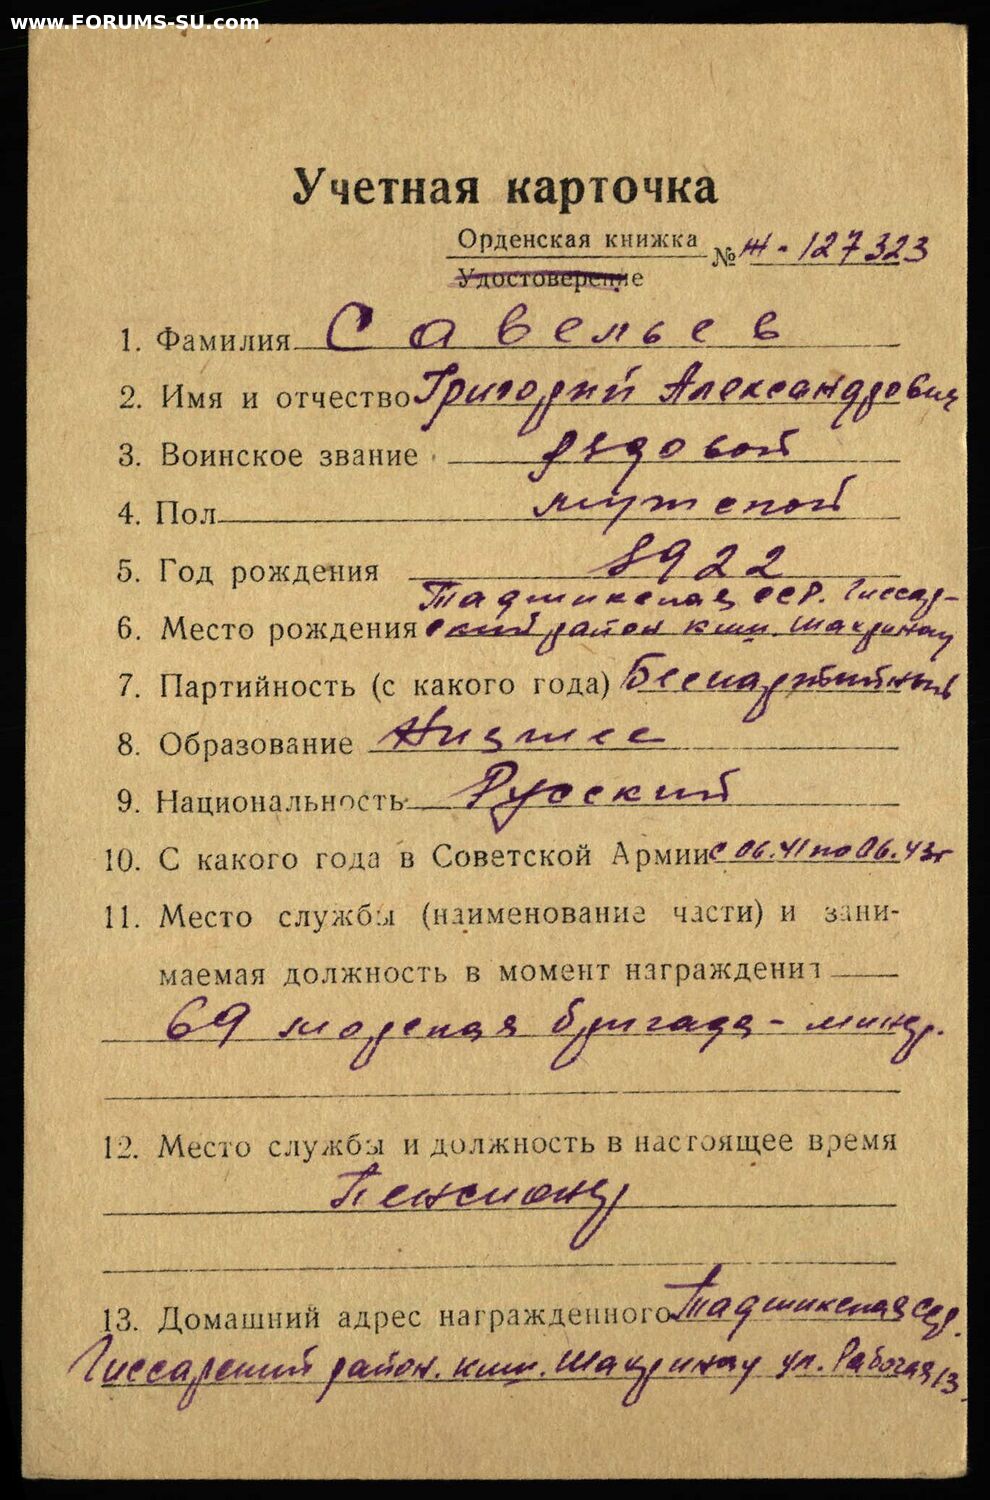 www.FORUMS-SU.com
Учетная карточка
Орденская книжка
Удостоверение № Ж-127323
1. Фамилия Савельев
2. Имя и отчество Григорий Александрович
3. Воинское звание рядовой
4. Пол мужской
5. Год рождения 1922
Таджикская ССР. Гиссар-
6. Место рождения ский район кшл. Шахринау
7. Партийность (с какого года) Беспартийный
8. Образование Низшее
9. Национальность Русский
10. С какого года в Советской Армии с 06.41 по 06.43г
11. Место службы (наименование части) и зани-
маемая должность в момент награждения
69 морская бригада - минер.
12. Место службы и должность в настоящее время
Пенсионер
13. Домашний адрес награжденного Таджикская сср.
Гиссарский район. кшл. Шахринау ул. Рабочая 13